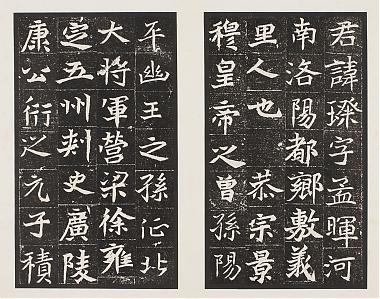 君諱璨字孟暉河
南洛陽都鄉敷義
里人也 恭宗景
穆皇帝之曾孫陽
平幽王之孫征北
大將軍營梁徐雍
定五州刺史廣陵
康公衍之元子積